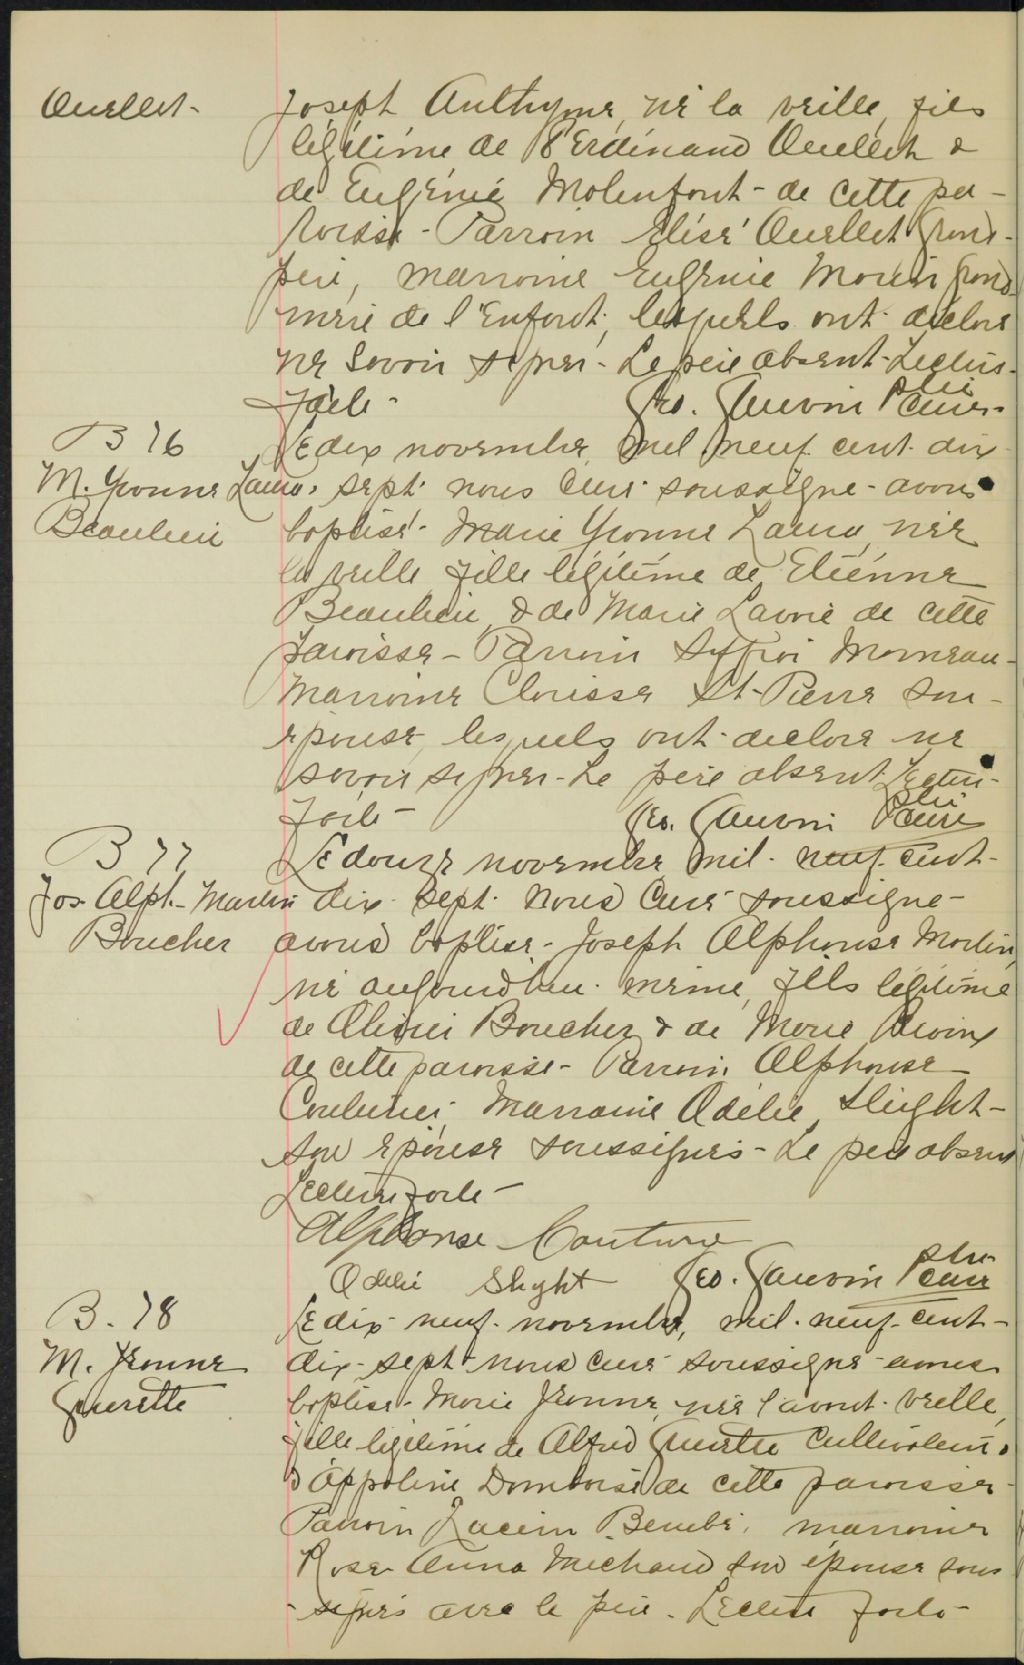 Ouellet-
Joseph Anthyme, né la veille, fils
légitime de Ferdinand Ouellet &
de Eugénie Molenfont - de cette pa-
roisse - Parrain Elisé Ouellet Grand-
père, marraine Eugénie Morin grand
mère de l'Enfant, lesquels ont déclaré
ne savoir signer - Le père absent - Lecture
faite - Geo. Gauvin Ptre curé
B 76
M. Yvonne Laura
Beaulieu
Le dix novembre mil neuf cent dix
sept nous curé soussigné - avons
baptisé - Marie Yvonne Laura, née
la veille fille légitime de Etienne
Beaulieu, & de Marie Lavoie de cette
paroisse - Parrain Morneau -
Marraine Clarisse St-Pierre son -
épouse, lesquels ont déclaré ne
savoir signer - Le père absent Lecture
faite - Geo. Gauvin Ptre curé
B 77
Jos. Alph. - Martin
Boucher
Le douze novembre mil - neuf cent -
dix sept nous curé soussigné -
avons baptisé - Joseph Alphonse Martin,
né aujourd'hui même, fils légitime
de Boucher & de Marie
de cette paroisse - Parrain Alphonse
Couture, Marraine Odélie Slight -
son épouse soussignés - Le père absent
Lecture faite -
Alphonse Couture
Odelie Slyght Geo. Gauvin Ptre curé
B. 78
M. Jeanne
Guerette
Le dix-neuf - novembre, mil - neuf - cent -
dix - sept nous curé soussigné - avons
baptisé - Marie Jeanne, née l'avant - veille,
fille légitime de Alfred Guerette cultivateur
& Appoline Dombosé de cette paroisse -
Parrain Bérubé, marraine
Rose - Anna Michaud son épouse sous
- signés avec le père - Lecture faite -